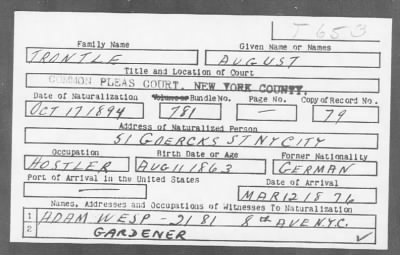 T653
Family Name Given Name or Names
TRONTLE AUGUST
Title and Location of Court
COMMON PLEAS COURT, NEW YORK COUNTY.
Date of Naturalization Volume or Bundle No. Page No. Copy of Record No.
OCT 17 1894 781 — 79
Address of Naturalized Person
51 GOERCKS ST NY CITY
Occupation Birth Date or Age Former Nationality
HOSTLER AUG 11 1863 GERMAN
Port of Arrival in the United States Date of Arrival
— MAR 12 1876
Names, Addresses and Occupations of Witnesses To Naturalization
1 ADAM WESP - 2181 8TH AVE N.Y.C.
2 GARDENER